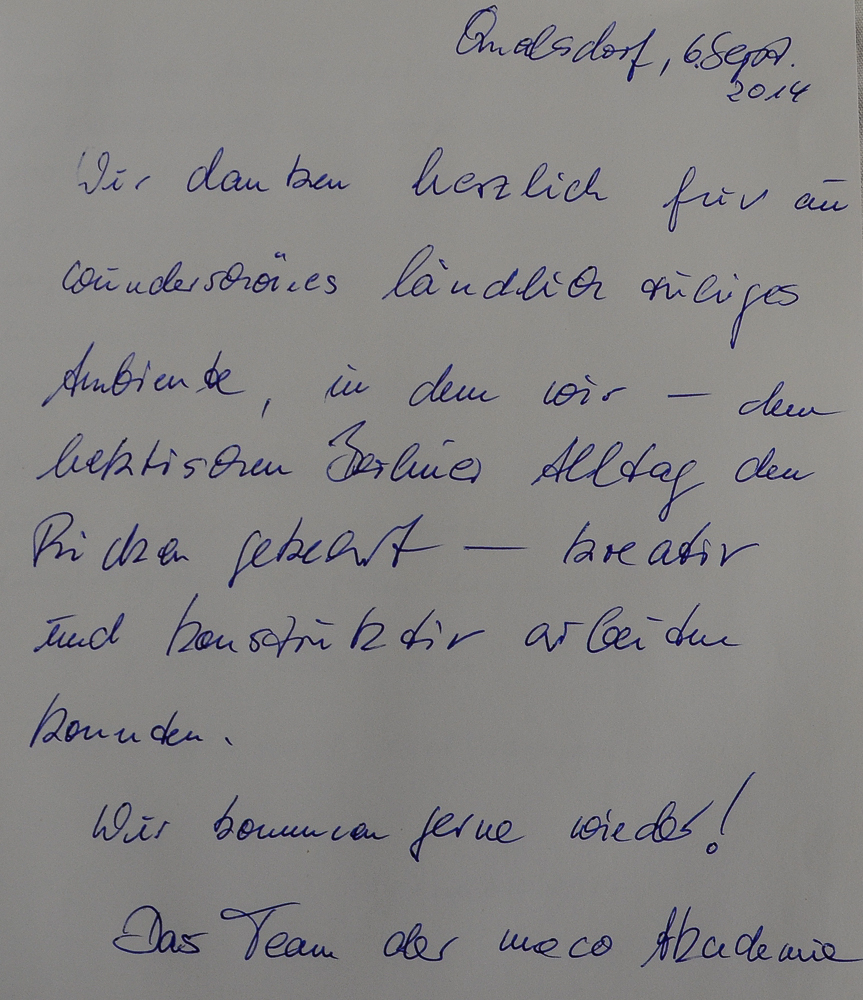 Qualsdorf, 6. Sept.
2014
Wir danken herzlich für ein
wunderschönes ländlich ruhiges
Ambiente, in dem wir – dem
hektischen Berliner Alltag den
Rücken gekehrt – kreativ
und konstruktiv arbeiten
konnten.
Wir kommen gerne wieder!
Das Team der meco Akademie